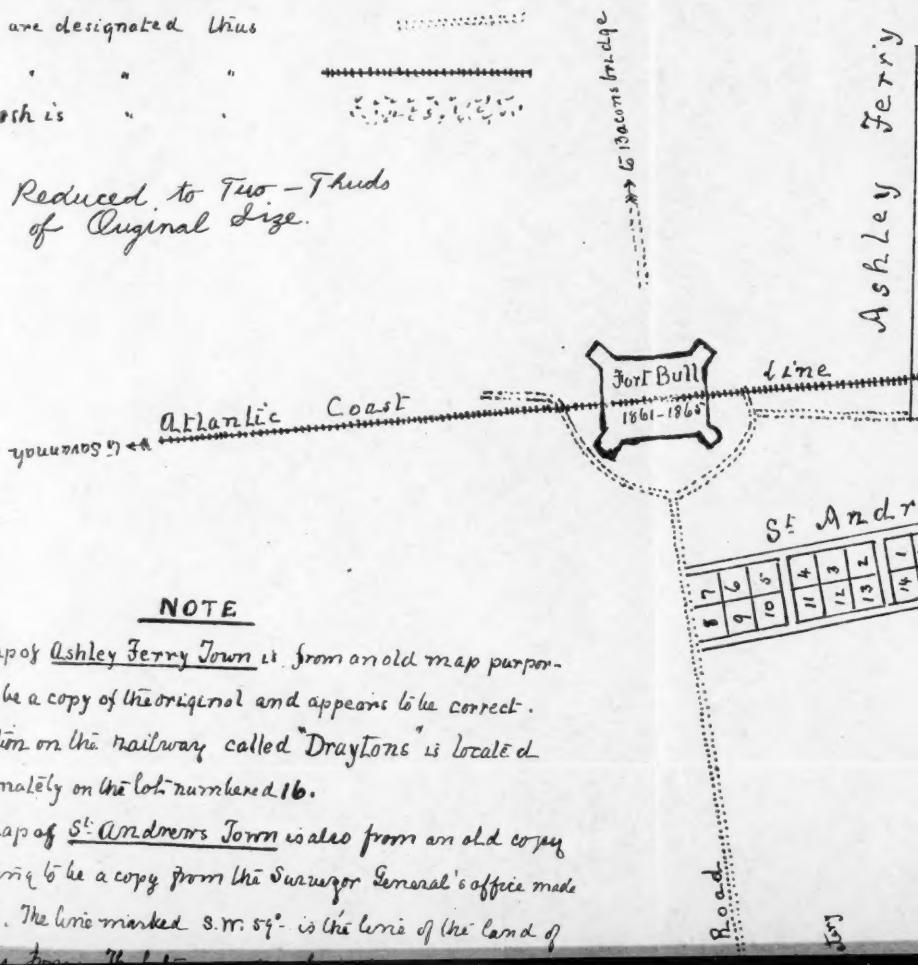 are designated thus
" " "
sh is " "
Reduced to Two-Thirds
of Original Size.
to Baconsbridge
Ashley Ferry
Fort Bull
1861-1865
Atlantic Coast Line
to Savannah
St. Andr
7 6 5 4 3 2 1
8 9 10 11 12 13 14
NOTE
ap of Ashley Ferry Town is from an old map purpor-
be a copy of the original and appears to be correct.
tion on the railway called "Draytons" is located
mately on the lot numbered 16.
ap of St. Andrews Town is also from an old copy
ing to be a copy from the Surveyor General's office made
. The line marked S.W. 59°- is the line of the land of
Road